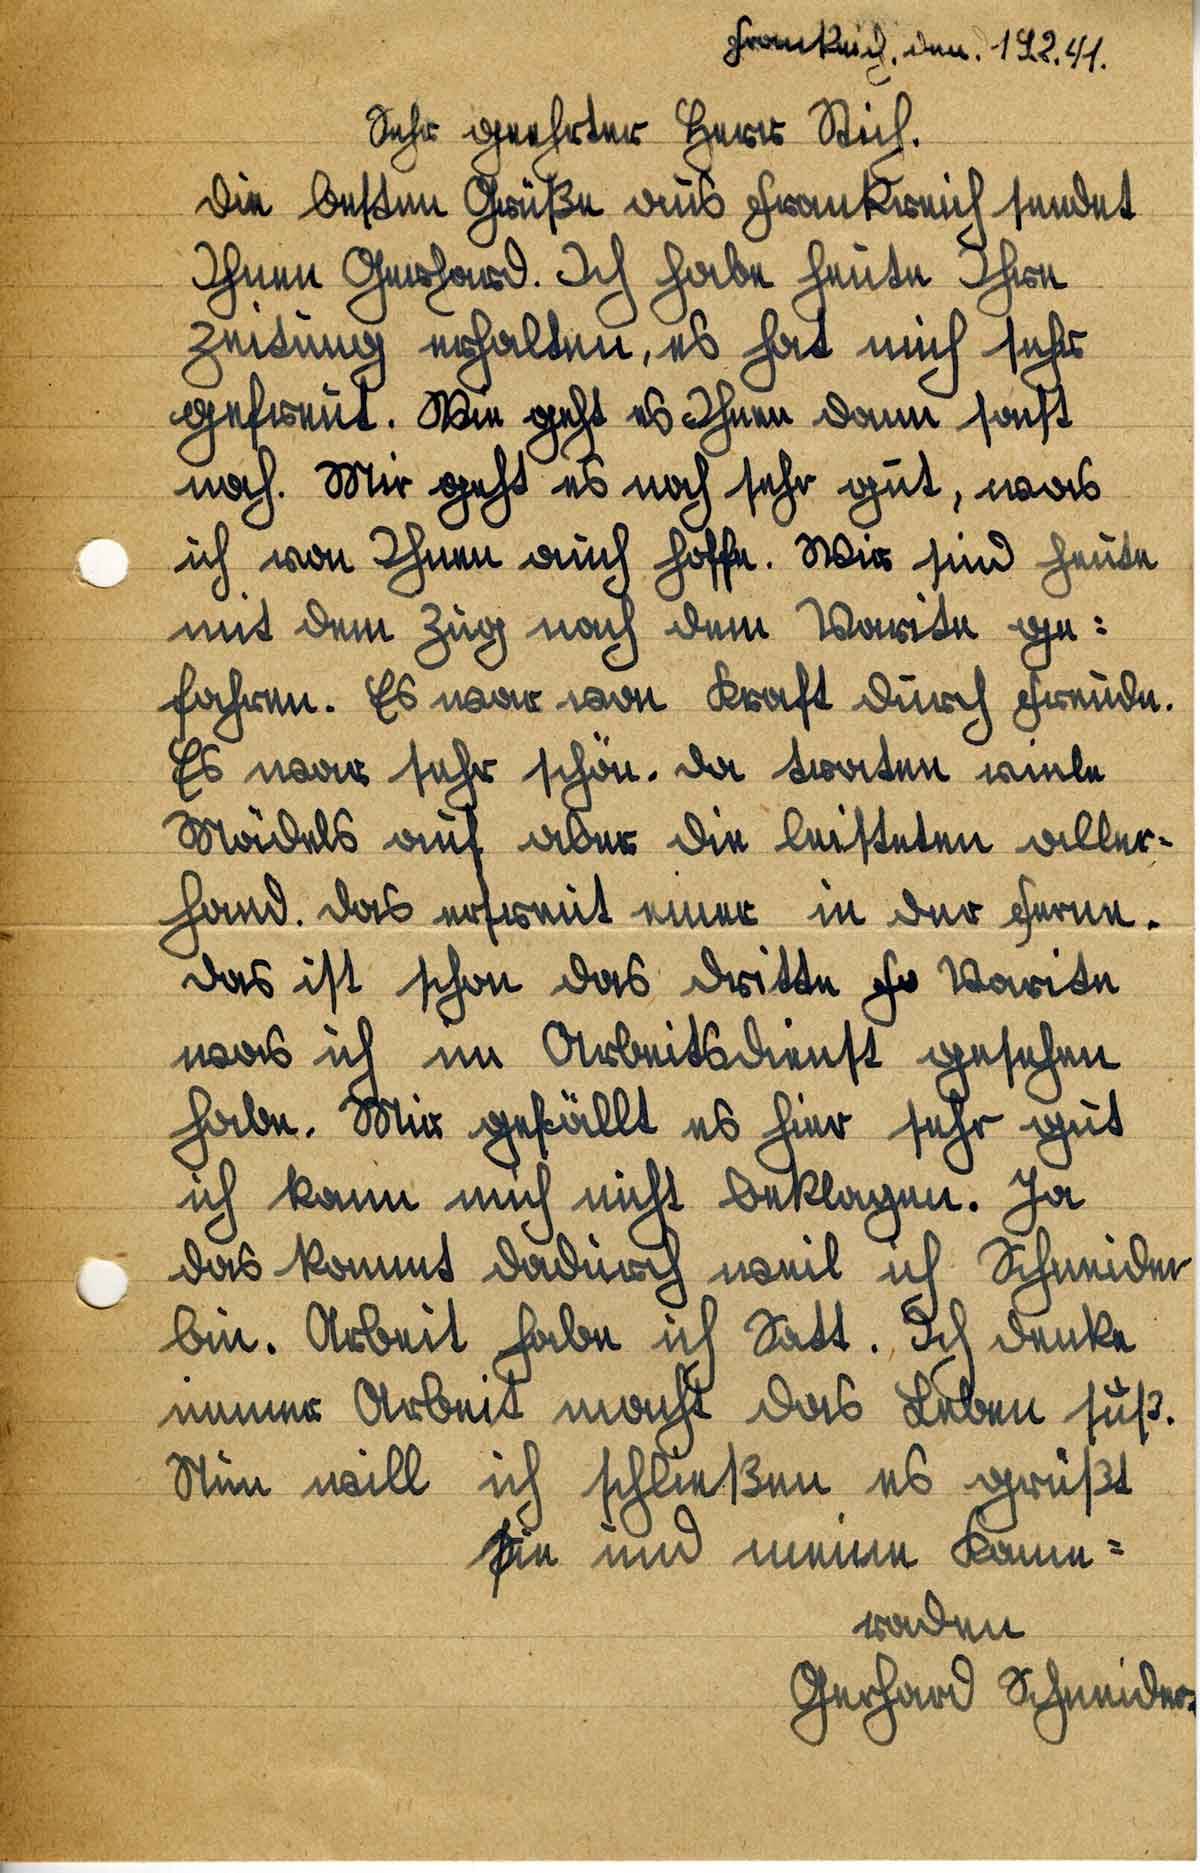 Frankreich, den. 19.2.41.
Sehr geehrter Herr Stich.
Die besten Grüße aus Frankreich sendet
Ihnen Gerhard. Ich habe heute Ihre
Zeitung erhalten, es hat mich sehr
gefreut. Wie geht es Ihnen dann sonst
noch. Mir geht es noch sehr gut, was
ich von Ihnen auch hoffe. Wir sind heute
mit dem Zug nach dem Varite ge=
fahren. Es war von Kraft durch Freude.
Es war sehr schön. Da traten viele
Mädels auf aber die leisteten aller=
hand. Das erfreut einer in der Ferne.
Das ist schon das dritte Varite
was ich im Arbeitsdienst gesehen
habe. Mir gefällt es hier sehr gut
ich kann mich nicht beklagen. Ja
das kommt dadurch weil ich Schneider
bin. Arbeit habe ich Satt. Ich denke
immer Arbeit macht das Leben süß.
Nun will ich schließen es grüßt
Sie und meine Kame=
raden
Gerhard Schneider.